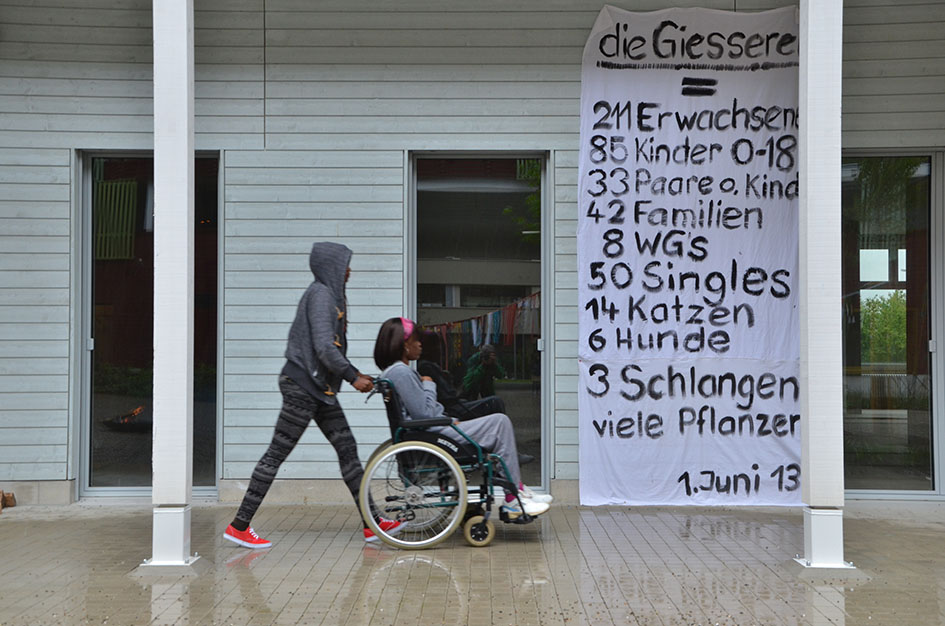 die Giessere
=
211 Erwachsen
85 Kinder 0-18
33 Paare o. Kind
42 Familien
8 WG's
50 Singles
14 Katzen
6 Hunde
3 Schlangen
viele Pflanzen
1. Juni 13